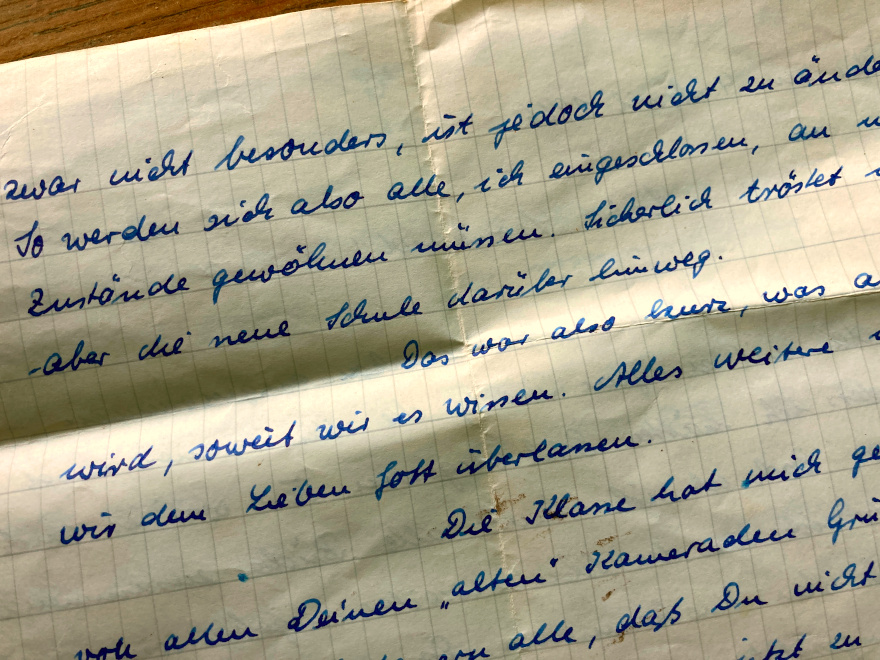 zwar nicht besonders, ist jedoch nicht zu ände
So werden sich also alle, ich eingeschlossen, an
Zustände gewöhnen müssen. Sicherlich tröstet
aber die neue Schule darüber hinweg.
Das war also kurz, was a
wird, soweit wir es wissen. Alles weitere
wir dem Lieben Gott überlassen.
Die Klasse hat mich ge
von allen Deinen „alten" Kameraden Grü
alle, daß Du nicht
jetzt zu